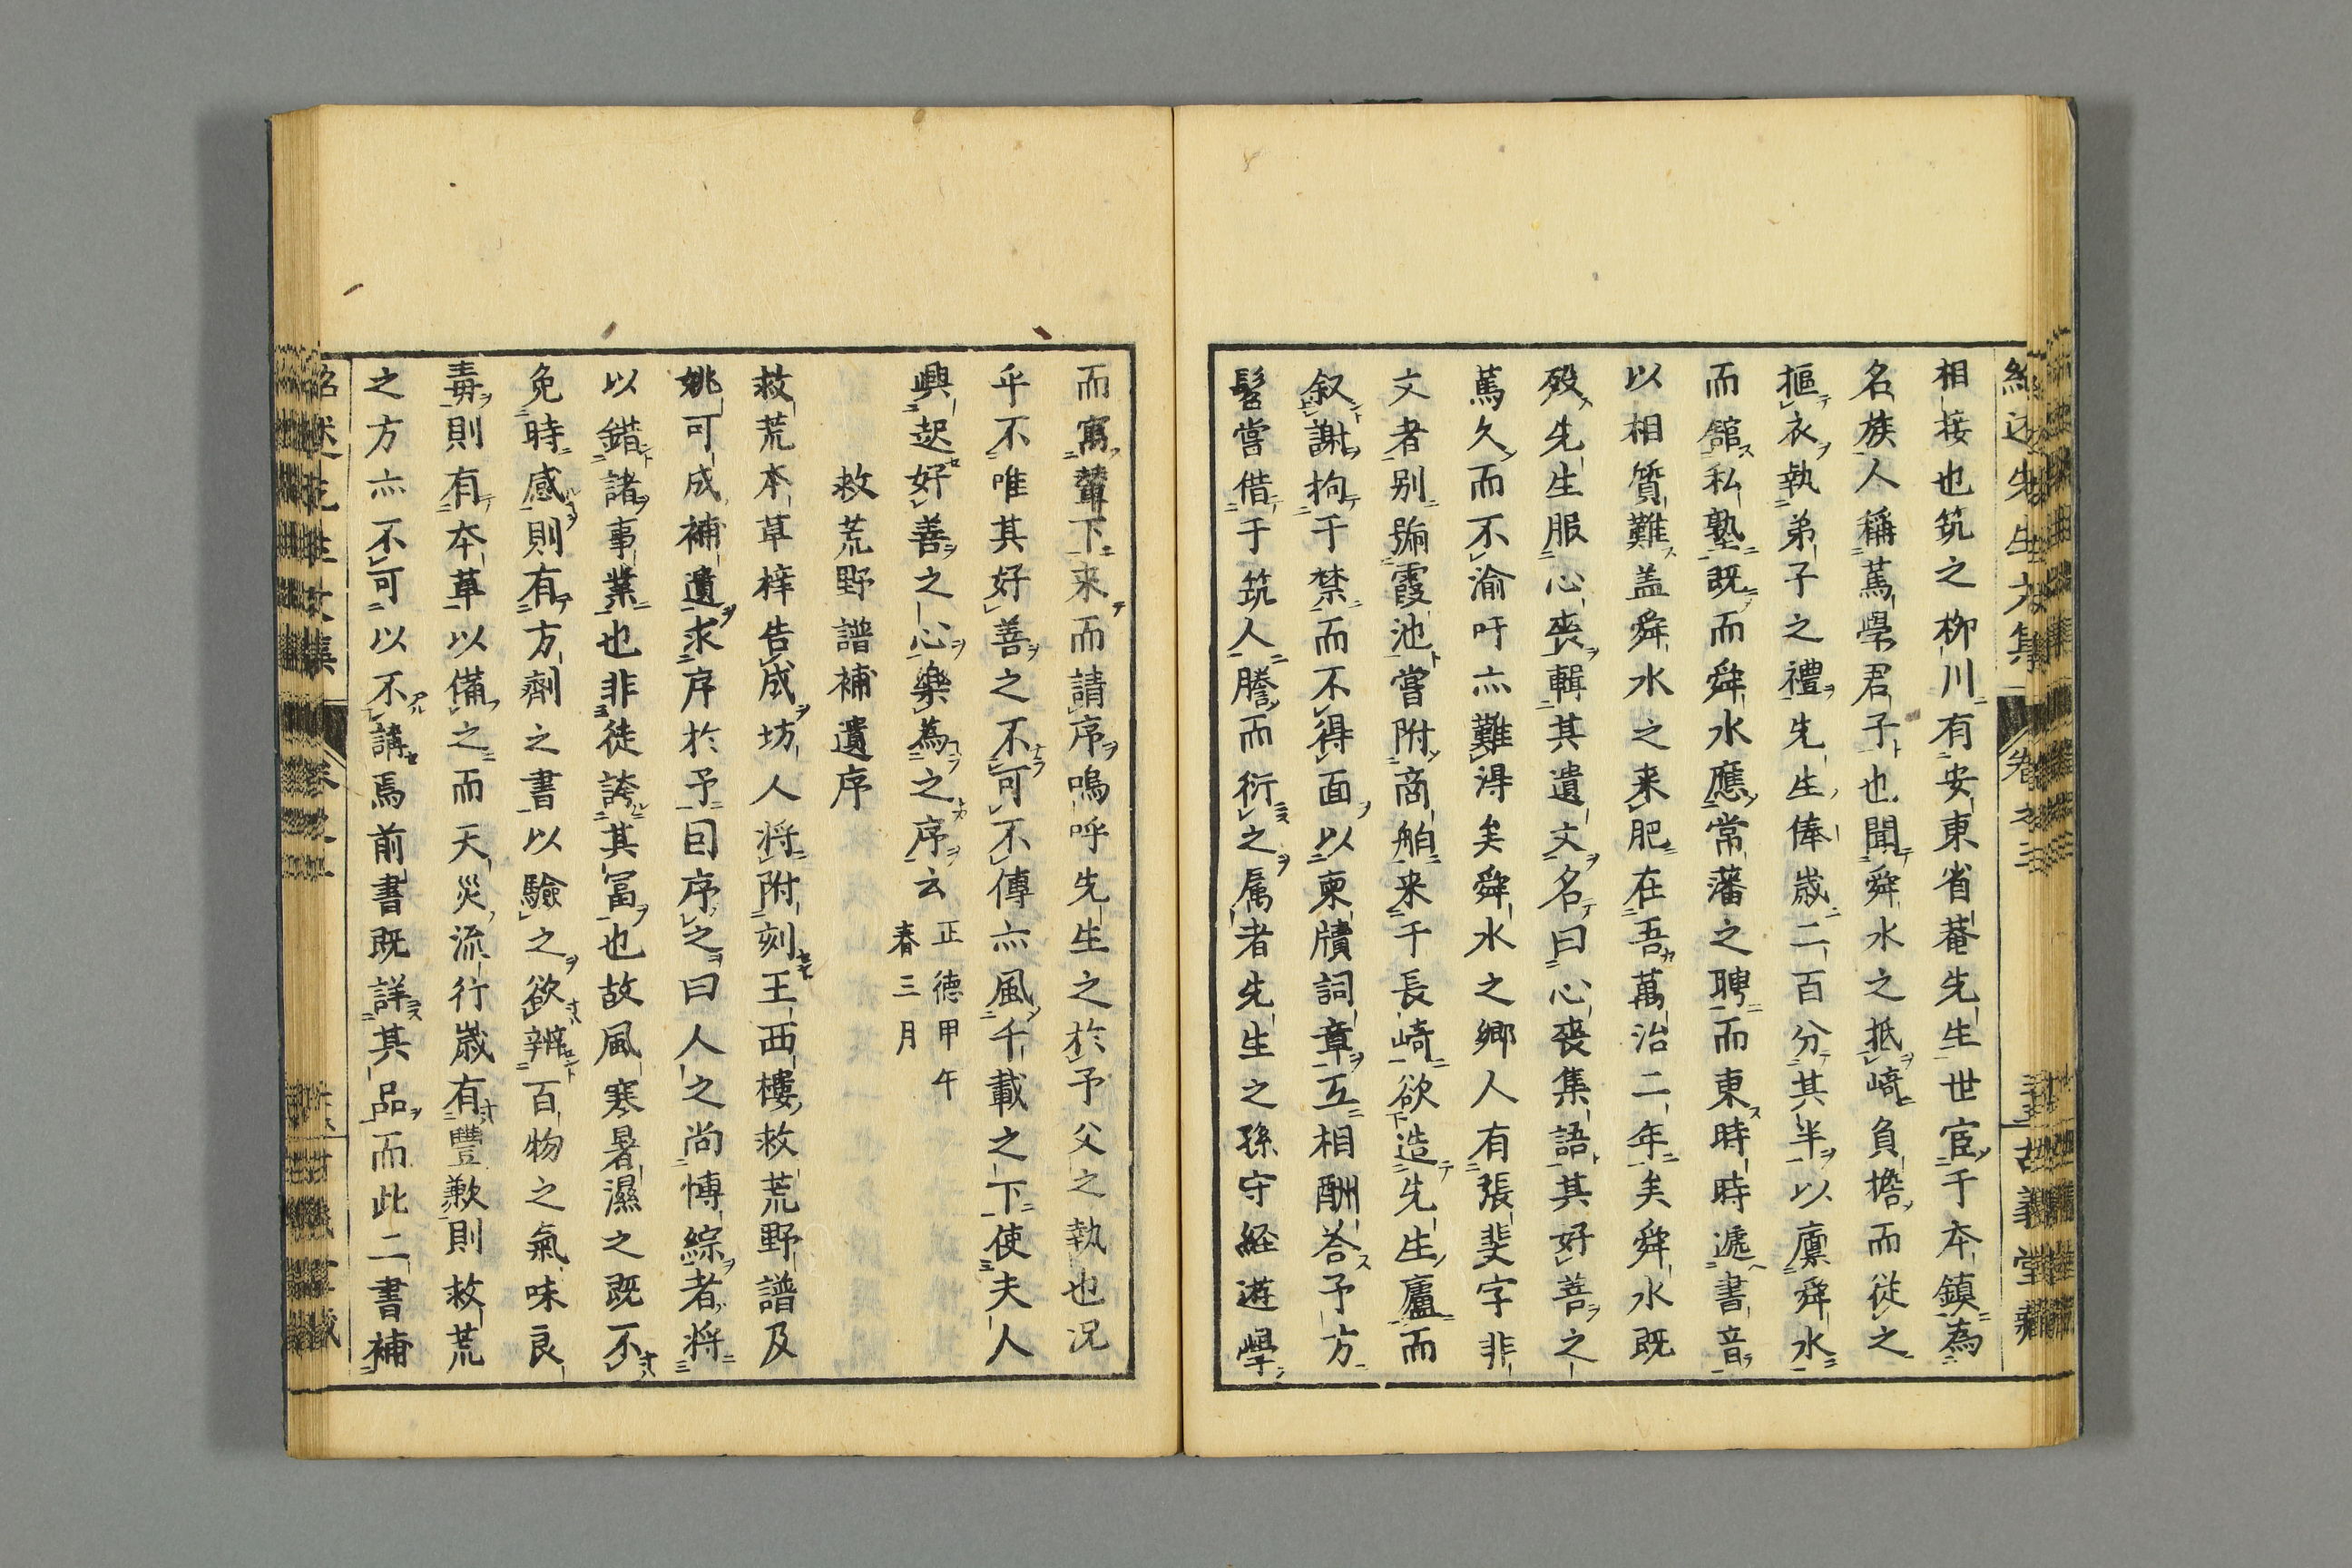 紹述先生文集 卷之三 古義堂藏
相接也筑之柳川有安東省菴先生世宦于本鎮為
名族人稱篤學君子也聞舜水之抵﨑負擔而從之
摳衣執弟子之禮先生俸歲二百分其半以廩舜水
而舘私塾既而舜水應常藩之聘而東時時遞書音
以相質難盖舜水之来肥在吾萬治二年矣舜水既
殁先生服心喪輯其遺文名曰心喪集語其好善之
篤久而不渝吁亦難得矣舜水之郷人有張斐字非
文者别號霞池嘗附商舶来于長﨑欲造先生廬而
叙謝拘于禁而不得面以柬牘詞章互相酬荅予方
髫嘗借于筑人謄而衍之厲者先生之孫守経遊學
而寓輦下来而請序嗚呼先生之於予父之執也况
乎不唯其好善之不可不傳亦風千載之下使夫人
興起好善之心樂為之序云 正德甲午春三月
救荒野譜補遺序
救荒本草梓告成坊人将附刻王西樓救荒野譜及
姚可成補遺求序於予因序之曰人之尚博綜者将
以錯諸事業也非徒誇其冨也故風寒暑濕之既不
免時感則有方劑之書以驗之欲辨百物之氣味良
毒則有本草以備之而天災流行歲有豐歉則救荒
之方亦不可以不講焉前書既詳其品而此二書補
紹述先生文集